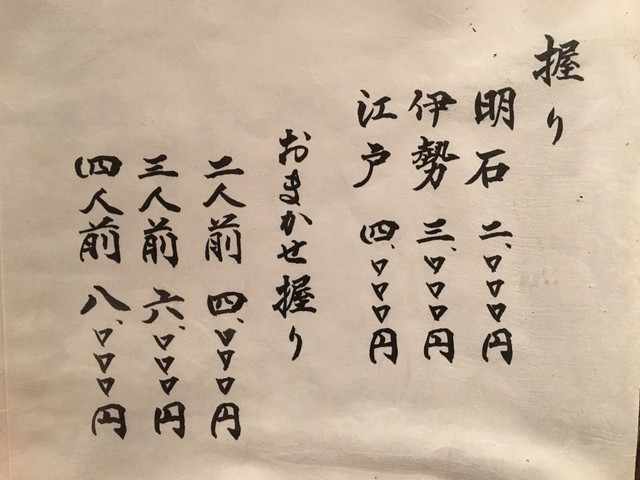 握り
明石 二、〇〇〇円
伊勢 三、〇〇〇円
江戸 四、〇〇〇円
おまかせ握り
二人前 四、〇〇〇円
三人前 六、〇〇〇円
四人前 八、〇〇〇円